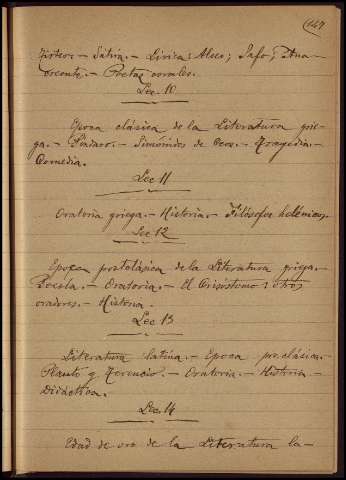 147
Tirteo. - Sátira. - Lírica: Alceo; Safo; Ana-
creonte. - Poetas corales.
Lec 10
Epoca clásica de la Literatura grie-
ga. - Píndaro. - Simónides de Ceos. - Tragedia. -
Comedia.
Lec 11
Oratoria griega. - Historia. - Filósofos helénicos.
Lec 12
Epoca postclásica de la Literatura griega. -
Poesía. - Oratoria. - El Crisóstomo: otros
oradores. - Historia.
Lec 13
Literatura latina. - Epoca preclásica. -
Plauto y Terencio. - Oratoria. - Historia. -
Didáctica.
Lec 14
Edad de oro de la Literatura la-